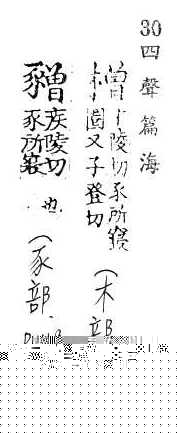 30 四聲篇海
陵切豕所寢
圈又子登切
(木部
疾陵切
豕所寢也
(豕部